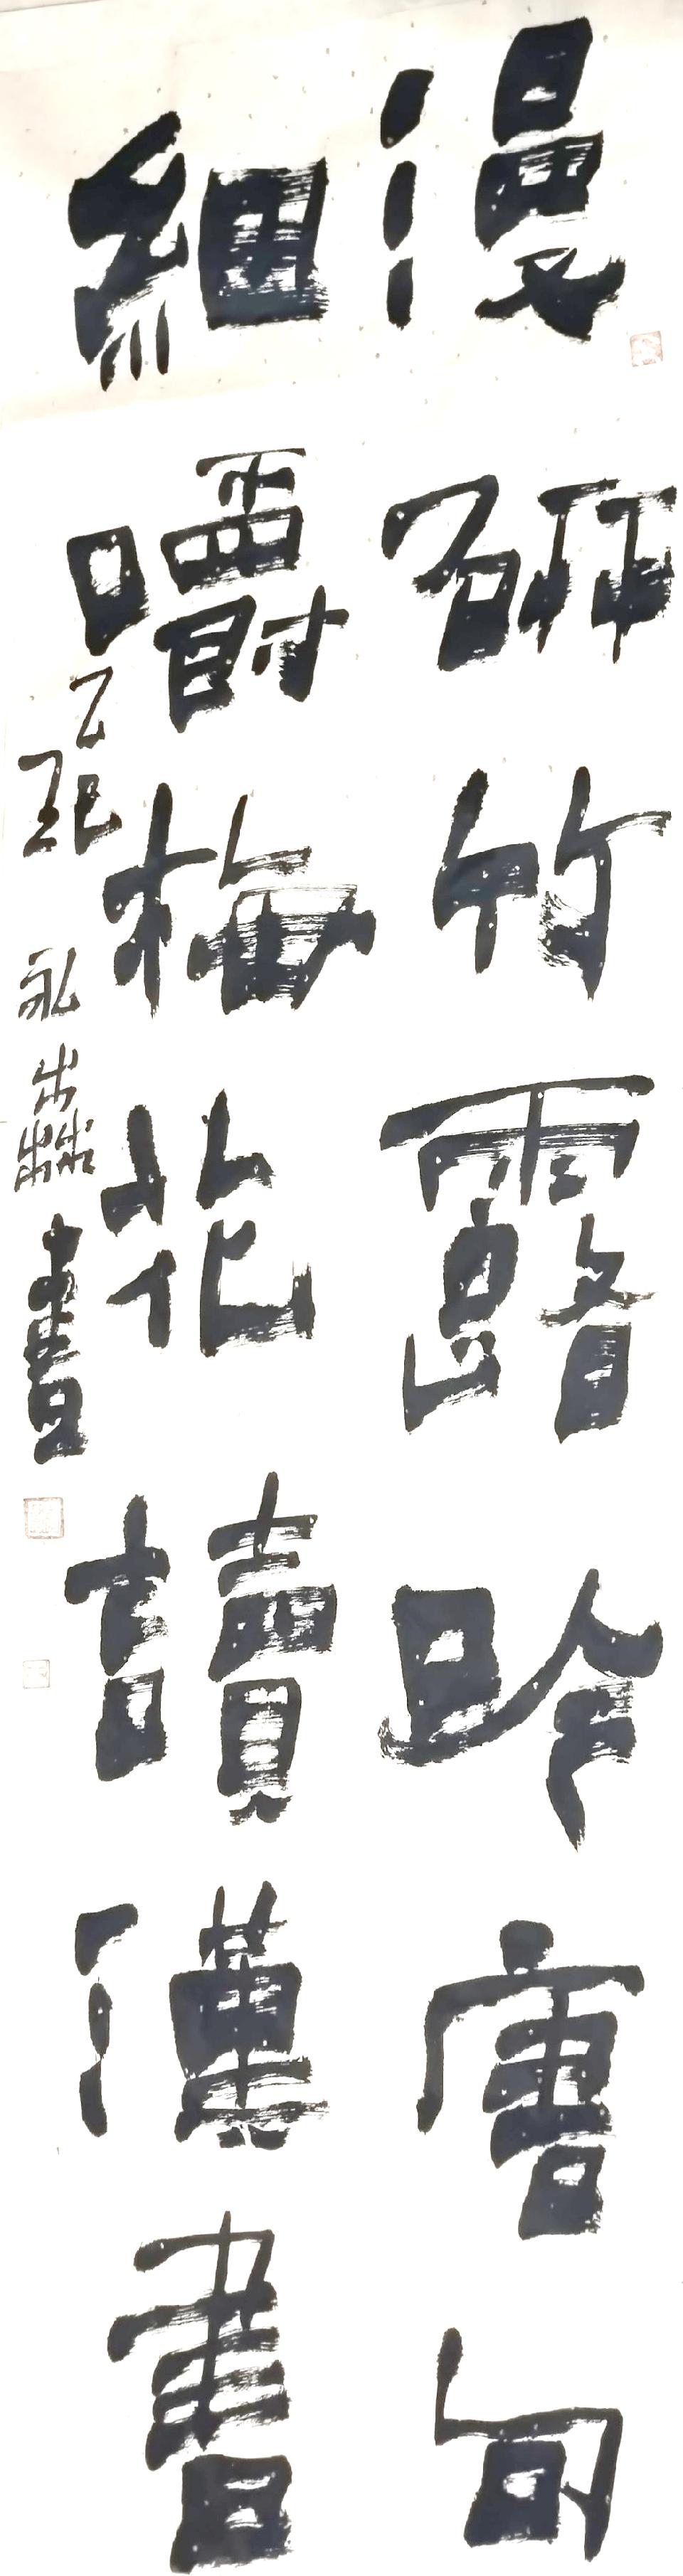 漫研竹露吟唐句
細嚼梅花讀漢書
乙巳 永 書